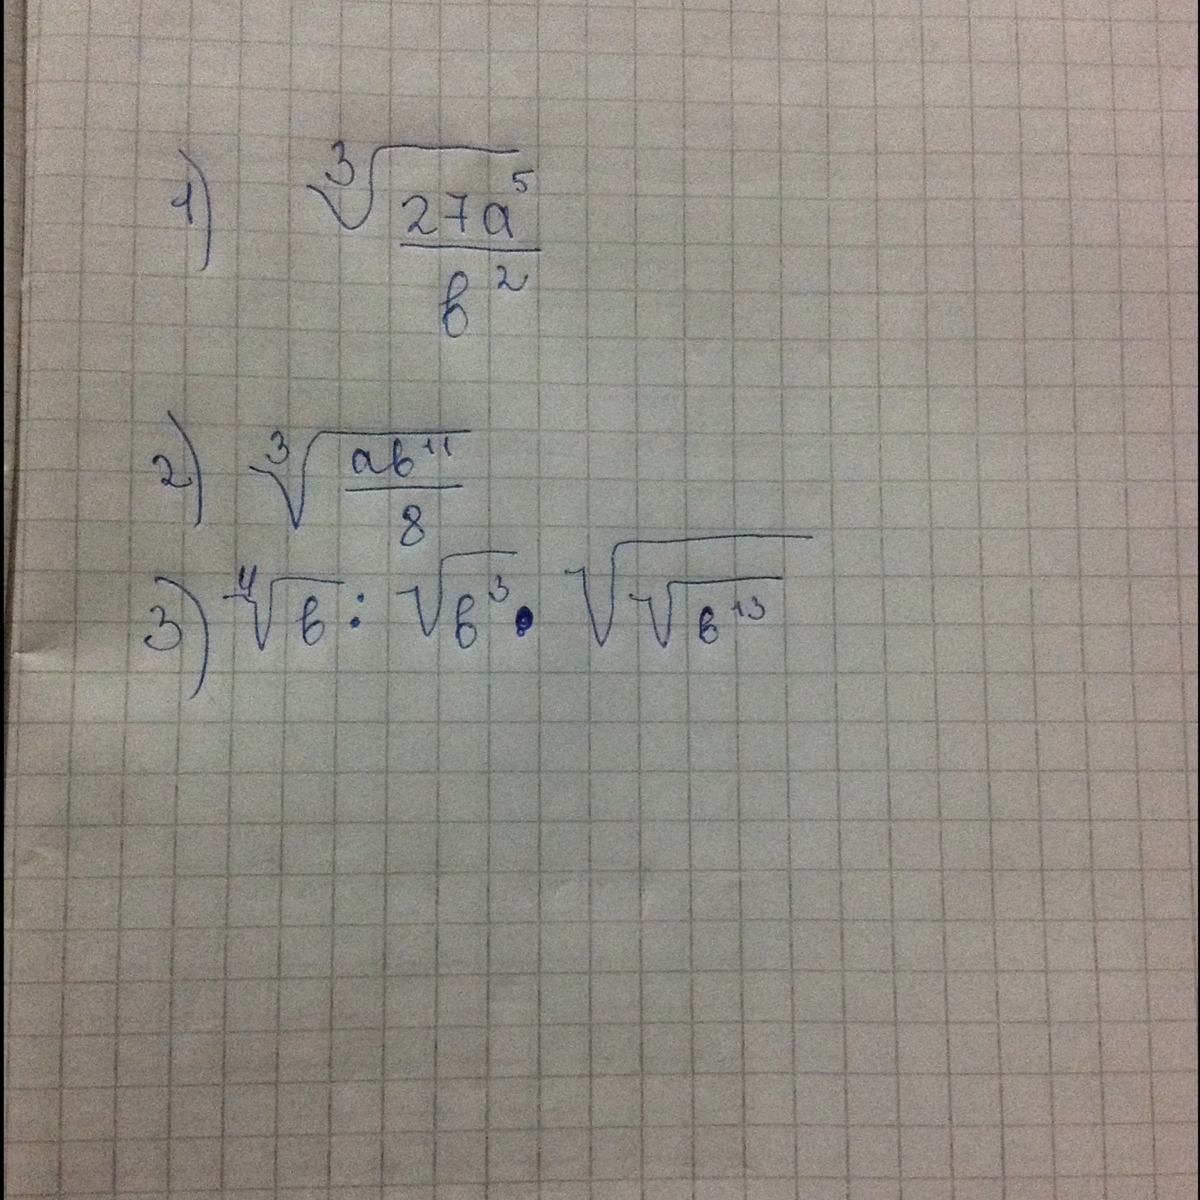 1) ∛(27a⁵/b²)
2) ∛(ab¹¹/8)
3) ⁴√b : √b³ · √√b¹³